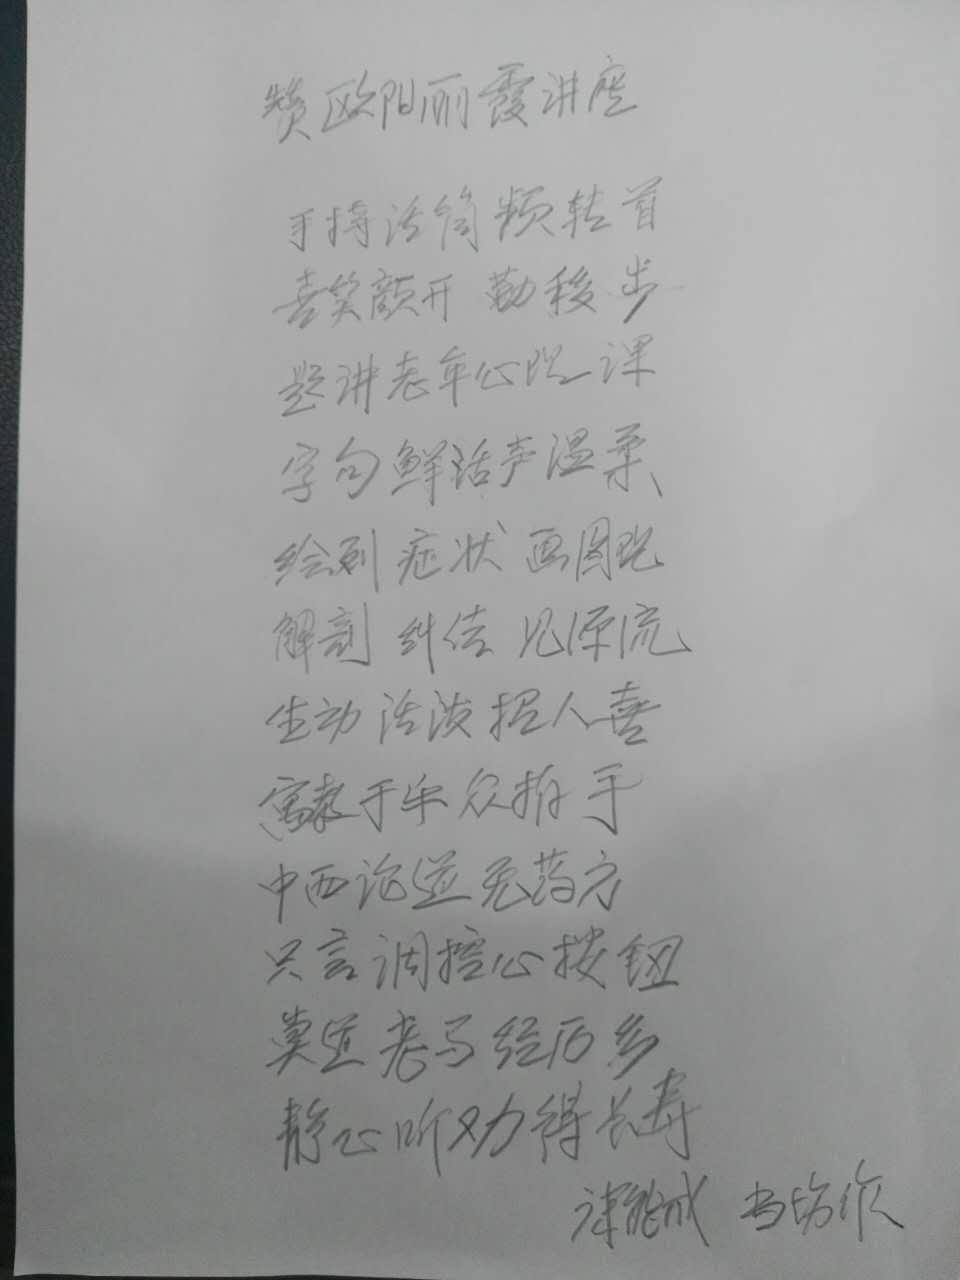 赞欧阳丽霞讲座
手持话筒频转首
喜笑颜开勤移步
题讲老年心悦课
字句鲜活声温柔
绘列症状画图说
解剖纠结见源流
生动活泼招人喜
寓教于乐众拍手
中西论道无药方
只言调控心按钮
莫道老马经历多
静心听劝得长寿
当场作